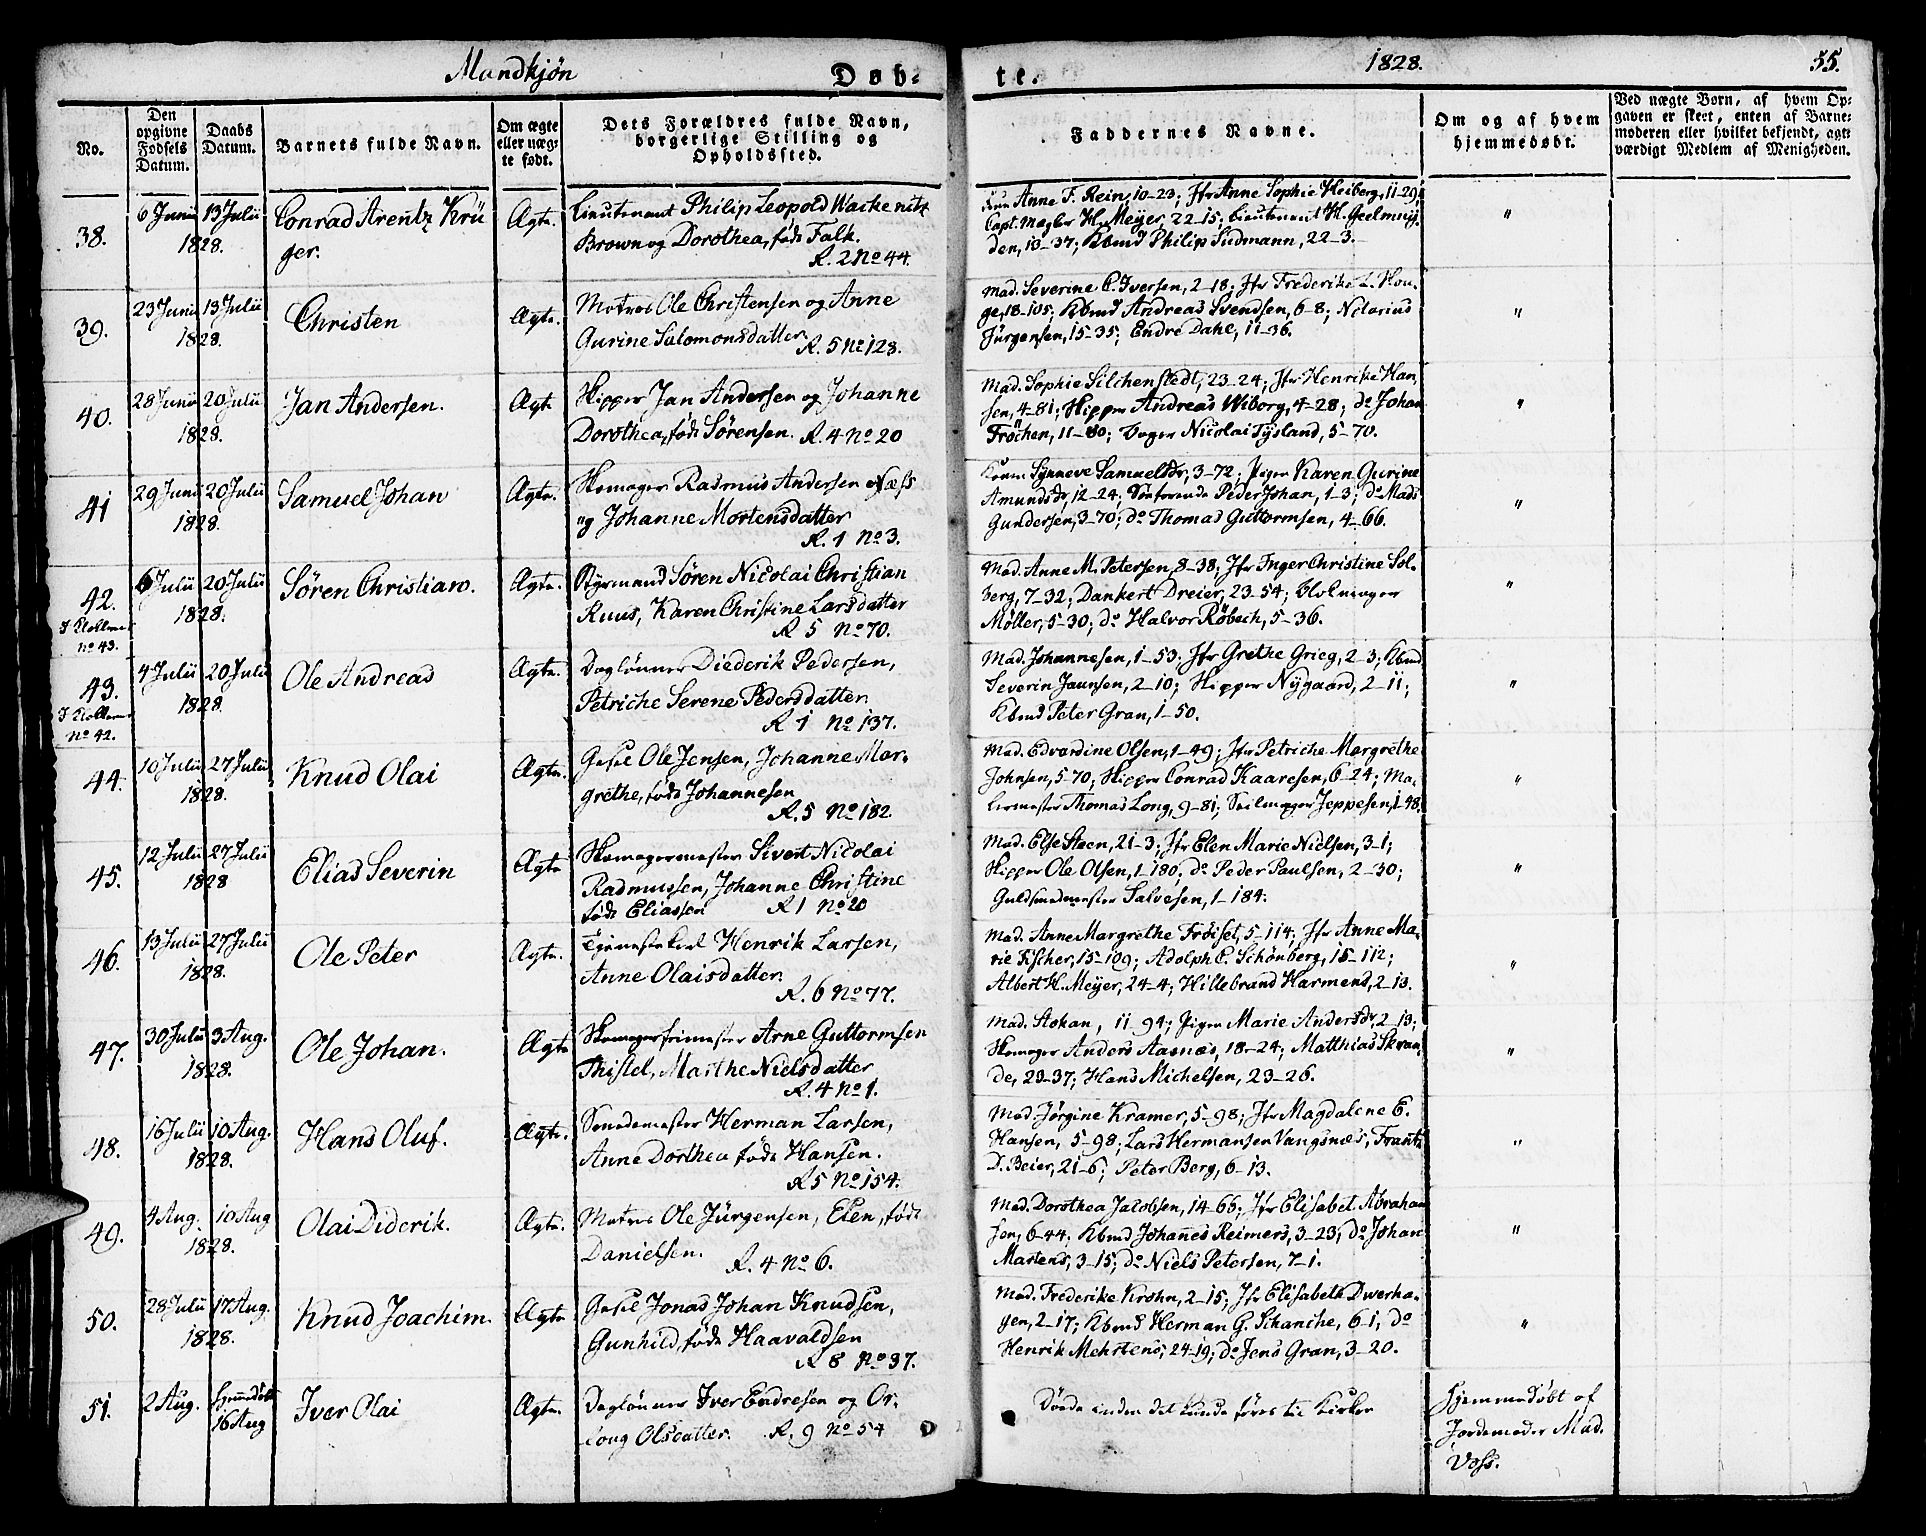 Mandkjøn
Døb-
te.
1828.
55.
No.
Den opgivne Fødsels Datum.
Daabs Datum.
Barnets fulde Navn.
Om ægte eller uægte født.
Dets Forældres fulde Navn, borgerlige Stilling og Opholdssted.
Faddernes Navne.
Om og af hvem hjemmedøbt.
Ved uægte Børn, af hvem Opgaven er skeet, enten af Barnemoderen eller hvilket bekjendt, agtværdigt Medlem af Menigheden.
38.
6 Junii 13 Julii
1828.
Conrad Arentz Krü
ger.
Ægte.
Lieutenant Philip Leopold Wackenitz
Brown og Dorothea, født Falk.
R. 2 No 44.
Anne F. Rein, 10-23; Jfr Anne Sophie Heiberg, 11-29;
Capt. Mægler H. Meyer, 22-15; Lieutenant H. Geelmuy-
den, 13-37; Kbmd Philip Sudmann, 22-3.
"
39.
23 Junii 13 Julii
1828.
Christen
Ægte.
Matros Ole Christensen og Anne
Gurine Salomonsdatter
R. 5 No 128.
Mad. Severine C. Iversen, 2-18; Jfr Frederikke L. Hou-
ge, 18-105; Kbmd Andreas Svendsen, 6-8; Notarius
Jürgensen, 15-35; Endre Dahl, 11-36.
"
40.
28 Junii 20 Julii
1828.
Jan Andersen.
Ægte
Skipper Jan Andersen og Johanne
Dorothea, født Sørensen. R. 4 No 20
Mad. Sophie Silchenstedt, 23-24; Jfr Henrikke Han-
sen, 4-81; Skipper Andreas Wiborg, 4-28; do Johan
Fröchen, 11-80; Bager Nicolai Tysland, 5-70.
"
41
29 Junii 20 Julii
1828.
Samuel Johan
Ægte.
Skomager Rasmus Andersen Næss
og Johanne Mortensdatter
R. 1 No 3.
Konen Synneve Samuelsdr, 3-72; Pigen Karen Gurine
Amundsdr, 12-24; Peder Johan, 1-3; do Mads
Gundersen, 3-70; do Thomas Guttormsen, 4-66.
"
42.
6 Julii 20 Julii
1828.
Søren Christian.
Ægte.
Styrmand Søren Nicolai Christian
Ruus, Karen Christine Larsdatter
R 5 No 70.
No 43.
Mad. Anne M. Petersen, 8-38; Jfr Inger Christine Sol-
berg, 7-32; Dankert Dreier, 23-54;
Møller, 5-30; do Halvor Röbech, 5-36.
"
43.
4 Julii 20 Julii
1828.
Ole Andreas
Ægte.
Daglønner Diederik Pedersen,
Petriche Serene Pedersdatter
R 1 No 137.
No 42.
Mad. Johannesen, 1-53; Jfr Grethe Grieg, 2-3; Kbmd
Severin Jaunsen, 2-10; Skipper Nygaard, 2-11;
Kbmd Peter Gran, 1-50.
"
44.
10 Julii 27 Julii
1828.
Knud Olai
Ægte.
Gesel Ole Jensen, Johanne Mar-
grethe, født Johannesen
R. 5 No 182.
Mad. Edvardine Olsen, 1-49; Jfr Petriche Margrethe
Johnsen, 5-70; Skipper Conrad Kaaresen, 6-24; Ma-
lermester Thomas Long, 9-81; Seilmager Jeppesen, 1-48.
"
45.
12 Julii 27 Julii
1828
Elias Severin
Ægte
Skomagermester Sivert Nicolai
Rasmussen, Johanne Christine
født Eliassen R 1 No 20
Mad. Else Steen, 21-3; Jfr Elen Marie Nielsen, 3-1;
Skipper Ole Olsen, 1-180; do Peder Paulsen, 2-30;
Guldsmedmester Salvesen, 1-184.
"
46.
13 Julii 27 Julii
1828.
Ole Peter
Ægte.
Tjenestekarl Henrik Larsen,
Anne Olaisdatter.
R. 6 No 77.
Mad. Anne Margrethe Frøiset, 5-114; Jfr Anne Ma-
rie Fischer, 15-109; Adolph C. Schönberg, 15-112;
Albert H. Meyer, 24-4; Hillebrand Harmens, 2-13.
"
47.
30 Julii 3 Aug.
1828.
Ole Johan.
Ægte
Skomagerfrimester Arne Guttormsen
Thistel, Marthe Nielsdatter
R. 4 No 1.
Mad. Stokan, 11-94; Pigen Marie Andersdr, 2-13;
Skomager Anders Aasnæs, 18-24; Matthias Skran-
de, 23-37; Hans Michelsen, 23-26.
"
48.
16 Julii 10 Aug.
1828.
Hans Oluf.
Ægte.
Smedemester Herman Larsen,
Anne Dorthea født Hansen.
R 5 No 154.
Mad. Jørgine Kramer, 5-98; Jfr Magdalene E.
Hansen, 5-98; Lars Hermansen Vangsnæs; Frantz
D. Beier, 21-6; Peter Berg, 6-13.
"
49.
4 Aug. 10 Aug
1828.
Olai Diderik.
Ægte.
Matros Ole Jürgensen, Elen, født
Danielsen. R. 4 No 6.
Mad. Dorothea Jacobsen, 14-66; Jfr Elisabet Abraham
sen, 6-44; Kbmd Johannes Reimers, 3-23; do Johan
Martens, 3-15; do Niels Petersen, 7-1.
"
50.
28 Julii 17 Aug.
1828.
Knud Joachim.
Ægte
Gesel Jonas Johan Knudsen,
Gunhild, født Haavaldsen
R 8 No 37.
Mad. Frederikke Krohn, 2-15; Jfr Elisabeth Dwerha-
gen, 2-17; Kbmd Herman G. Schanche, 6-1; do
Henrik Mehrtens, 24-19; do Jens Gran, 3-20.
"
51.
2 Aug. Hjemmedøbt
16 Aug
Iver Olai
Ægte.
Daglønner Iver Endresen og Or-
long Olsdatter. R. 9 No 54
Døde inden det kunde føres til Kirken
Hjemmedøbt af
Jordemoder Mad.
Voss.